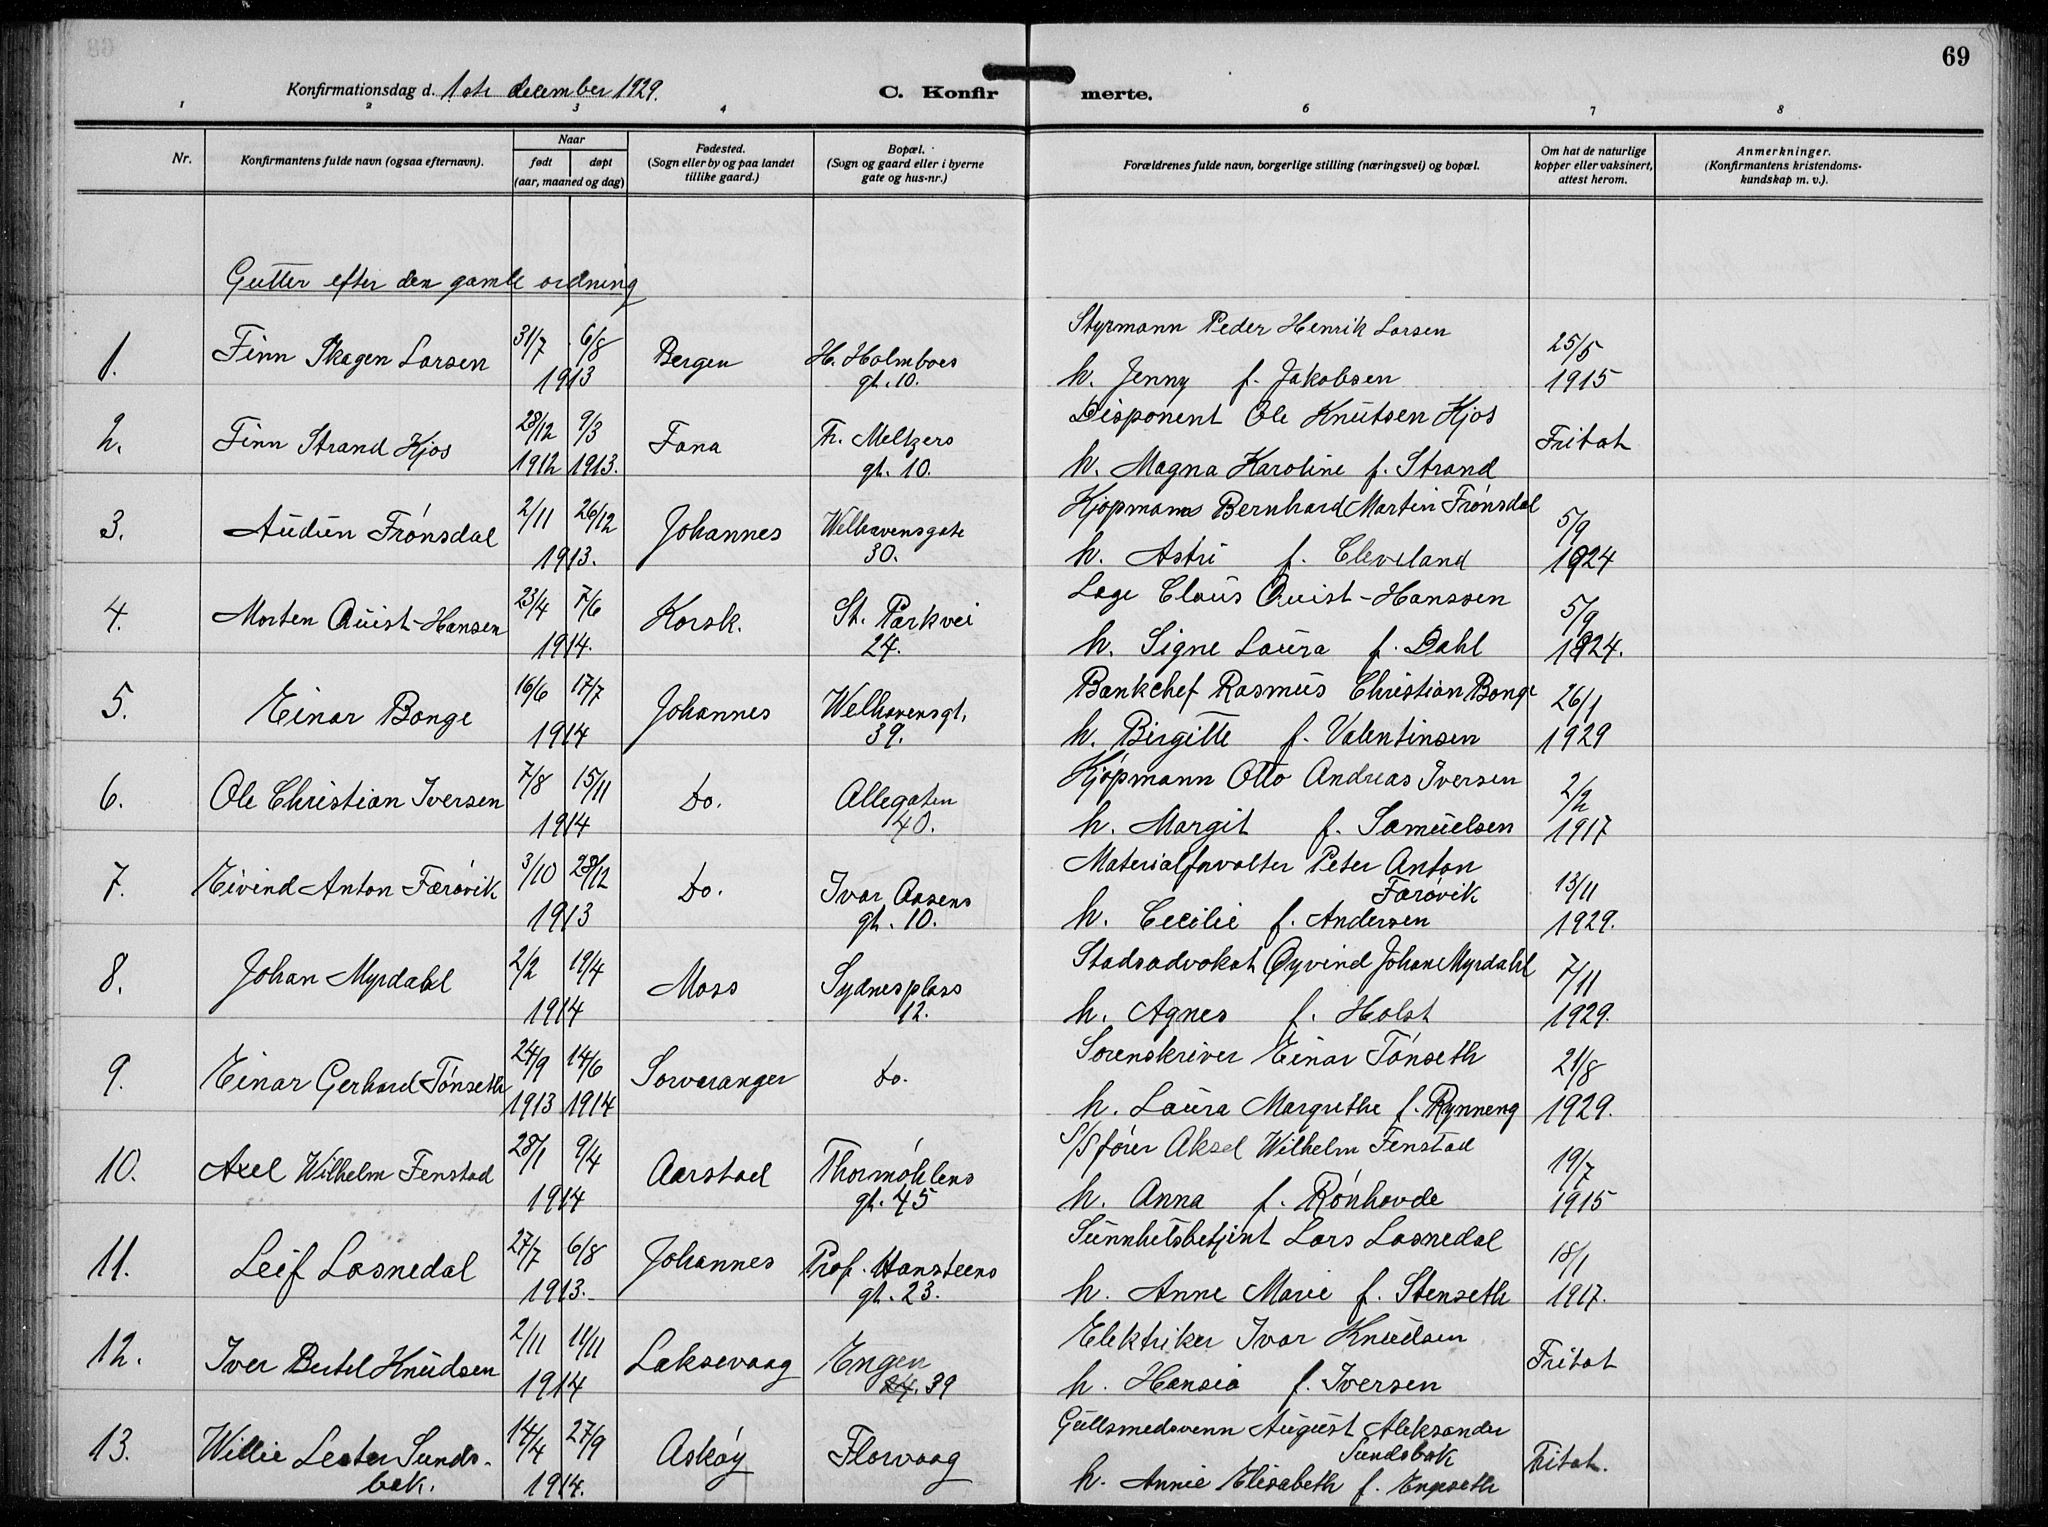 69
Konfirmationsdag d. 1ste december 1929.
C. Konfirmerte.
1 2 3 4 6 7 8
Nr.
Konfirmantens fulde navn (ogsaa efternavn).
Naar
født døpt
(aar, maaned og dag)
Fødested.
(Sogn eller by og paa landet
tillike gaard.)
Bopæl.
(Sogn og gaard eller i byerne
gate og hus-nr.)
Forældrenes fulde navn, borgerlige stilling (næringsvei) og bopæl.
Om hat de naturlige
kopper eller vaksinert,
attest herom.
Anmerkninger.
(Konfirmantens kristendoms-
kundskap m. v.).
Gutter efter den gamle ordning
Styrmann Peder Henrik Larsen
1. Finn Skagen Larsen 31/7 6/8 Bergen H. Holmboes 25/5
1913 gt. 10. h. Jenny f. Jakobsen 1915
2. Finn Strand Kjos 28/12 9/3 Fana Th. Meltzers Disponent Ole Knutsen Kjos Fritat
1912 1913. gt. 10. h. Magna Karoline f. Strand
3. Audun Frønsdal 2/11 26/12 Johannes Welhavensgate Kjøpmann Bernhard Martin Frønsdal 5/9
1913. 30. h. Astri f. Cleveland 1924
4. Morten Quist-Hansen 23/4 7/6 Korsk. St. Parkvei Læge Claus Quist-Hanssen 5/9
1914. 24. h. Signe Laura f. Dahl 1924.
5. Einar Bonge 16/6 17/7 Johannes Welhavensgt. Bankchef Rasmus Christian Bonge 26/1
1914 39. h. Birgitte f. Valentinsen 1929
6. Ole Christian Iversen 7/8 15/11 Do. Allegaten Kjøpmann Otto Andreas Iversen 2/2
1914 40. h. Margit f. Samuelsen 1917
7. Eivind Anton Færøvik 3/10 28/12 Do. Ivar Aasens Materialforvalter Peter Anton
Færøvik 13/11
1913 gt. 10. h. Cecilie f. Andersen 1929.
8. Johan Myrdahl 2/2 19/4 Moss Sydnesplass Stadsadvokat Øyvind Johan Myrdahl 7/11
1914 12. h. Agnes f. Holst 1929.
9. Einar Gerhard Tønseth 24/9 14/6 Sørvaranger Do. Sorenskriver Einar Tønseth 21/8
1913 1914 h. Laura Margrethe f. Rynneng 1929.
10. Axel Wilhelm Fenstad 28/1 9/4 Aarstad Thormøhlens S/S fører Aksel Wilhelm Fenstad 19/7
1914 gt. 45 h. Anna f. Rønhovde 1915
11. Leif Losnedal 27/7 6/8 Johannes Prof. Hansteens Sunnhetsbetjent Lars Losnedal 18/1
1913. gt. 23. h. Anne Marie f. Stenseth 1917.
12. Iver Bertel Knudsen 2/11 11/11 Laksevaag Engen Elektriker Ivar Knudsen Fritat
1914 39 h. Hansia f. Iversen
13. Willie Lester Sunds- 14/4 27/9 Askøy Florvaag Gullsmedsvenn August Aleksander
Sundsbak Fritat.
bak. 1914. h. Annie Elisabeth f. Engeseth